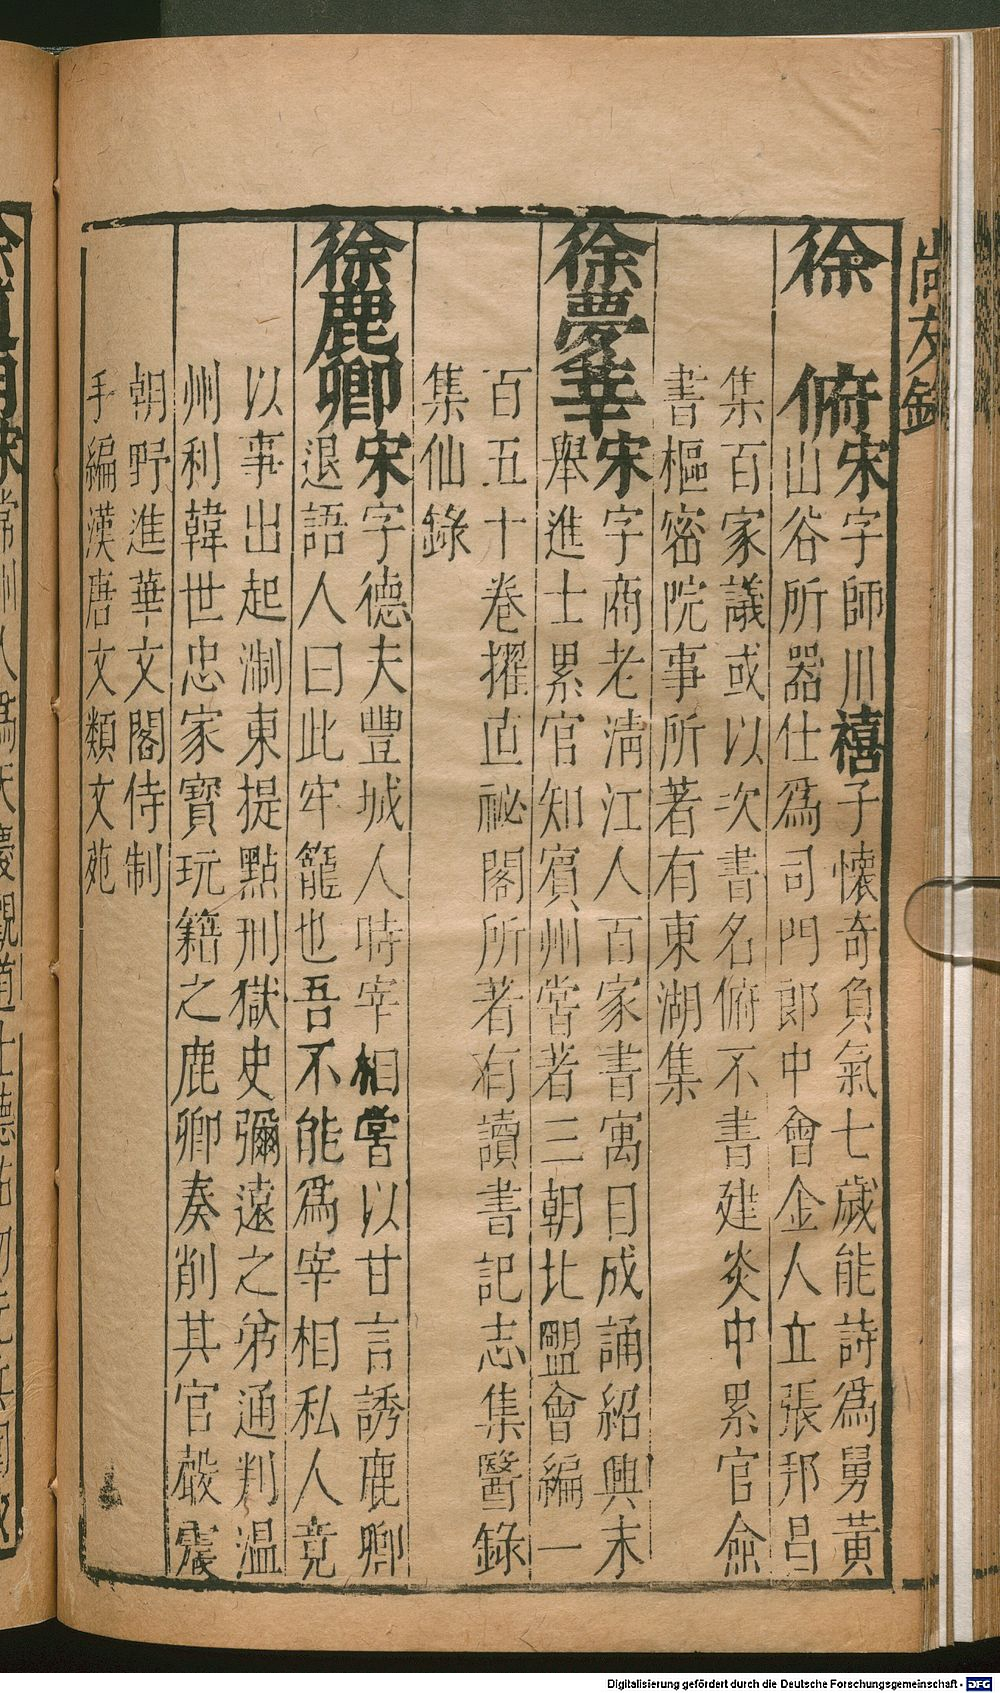 尚友錄
徐俯宋字師川禧子懷奇負氣七歲能詩爲舅黃
山谷所器仕爲司門郎中會金人立張邦昌
集百家議或以次書名俯不書建炎中累官僉
書樞密院事所著有東湖集
徐夢莘宋字商老淸江人百家書寓目成誦紹興末
舉進士累官知賓州嘗著三朝北盟會編一
百五十卷擢直祕閣所著有讀書記志集醫錄
集仙錄
徐鹿卿宋字德夫豐城人時宰相嘗以甘言誘鹿卿
退語人曰此牢籠也吾不能爲宰相私人竟
以事出起浙東提點刑獄史彌遠之弟通判溫
州利韓世忠家寶玩籍之鹿卿奏削其官
朝野進華文閣侍制
手編漢唐文類文苑
Digitalisierung gefördert durch die Deutsche Forschungsgemeinschaft - DFG